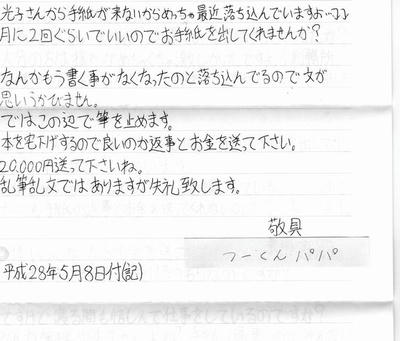 光子さんから手紙が来ないからめっちゃ最近落ち込んでいますよ…
月に2回ぐらいでいいのでお手紙を出してくれませんか?
なんかもう書く事がなくなったのと落ち込んでるので文が
思いうかびません。
ではこの辺で筆を止めます。
本を宅下げするので良いのか返事とお金を送って下さい。
20,000円送って下さいね。
乱筆乱文ではありますが失礼致します。
敬具
つーくんパパ
平成28年5月8日付(記)